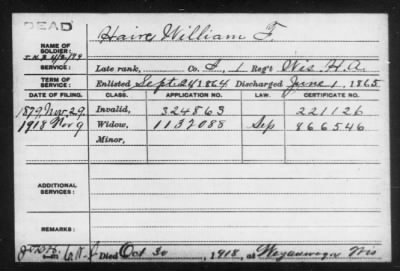 DEAD
NAME OF SOLDIER: Haire, William F.
SERVICE: Late rank, Co. F, 1 Reg't Wis. H.A.
TERM OF SERVICE: Enlisted Sept. 24 1864 Discharged June 1, 1865
DATE OF FILING. CLASS. APPLICATION NO. LAW. CERTIFICATE NO.
1879 Nov. 29. Invalid, 324863 221126
1918 Nov 9 Widow, 1132088 Sep 866546
Minor,
ADDITIONAL SERVICES:
REMARKS:
Died Oct 30, 1918, at Weyauwega Wis